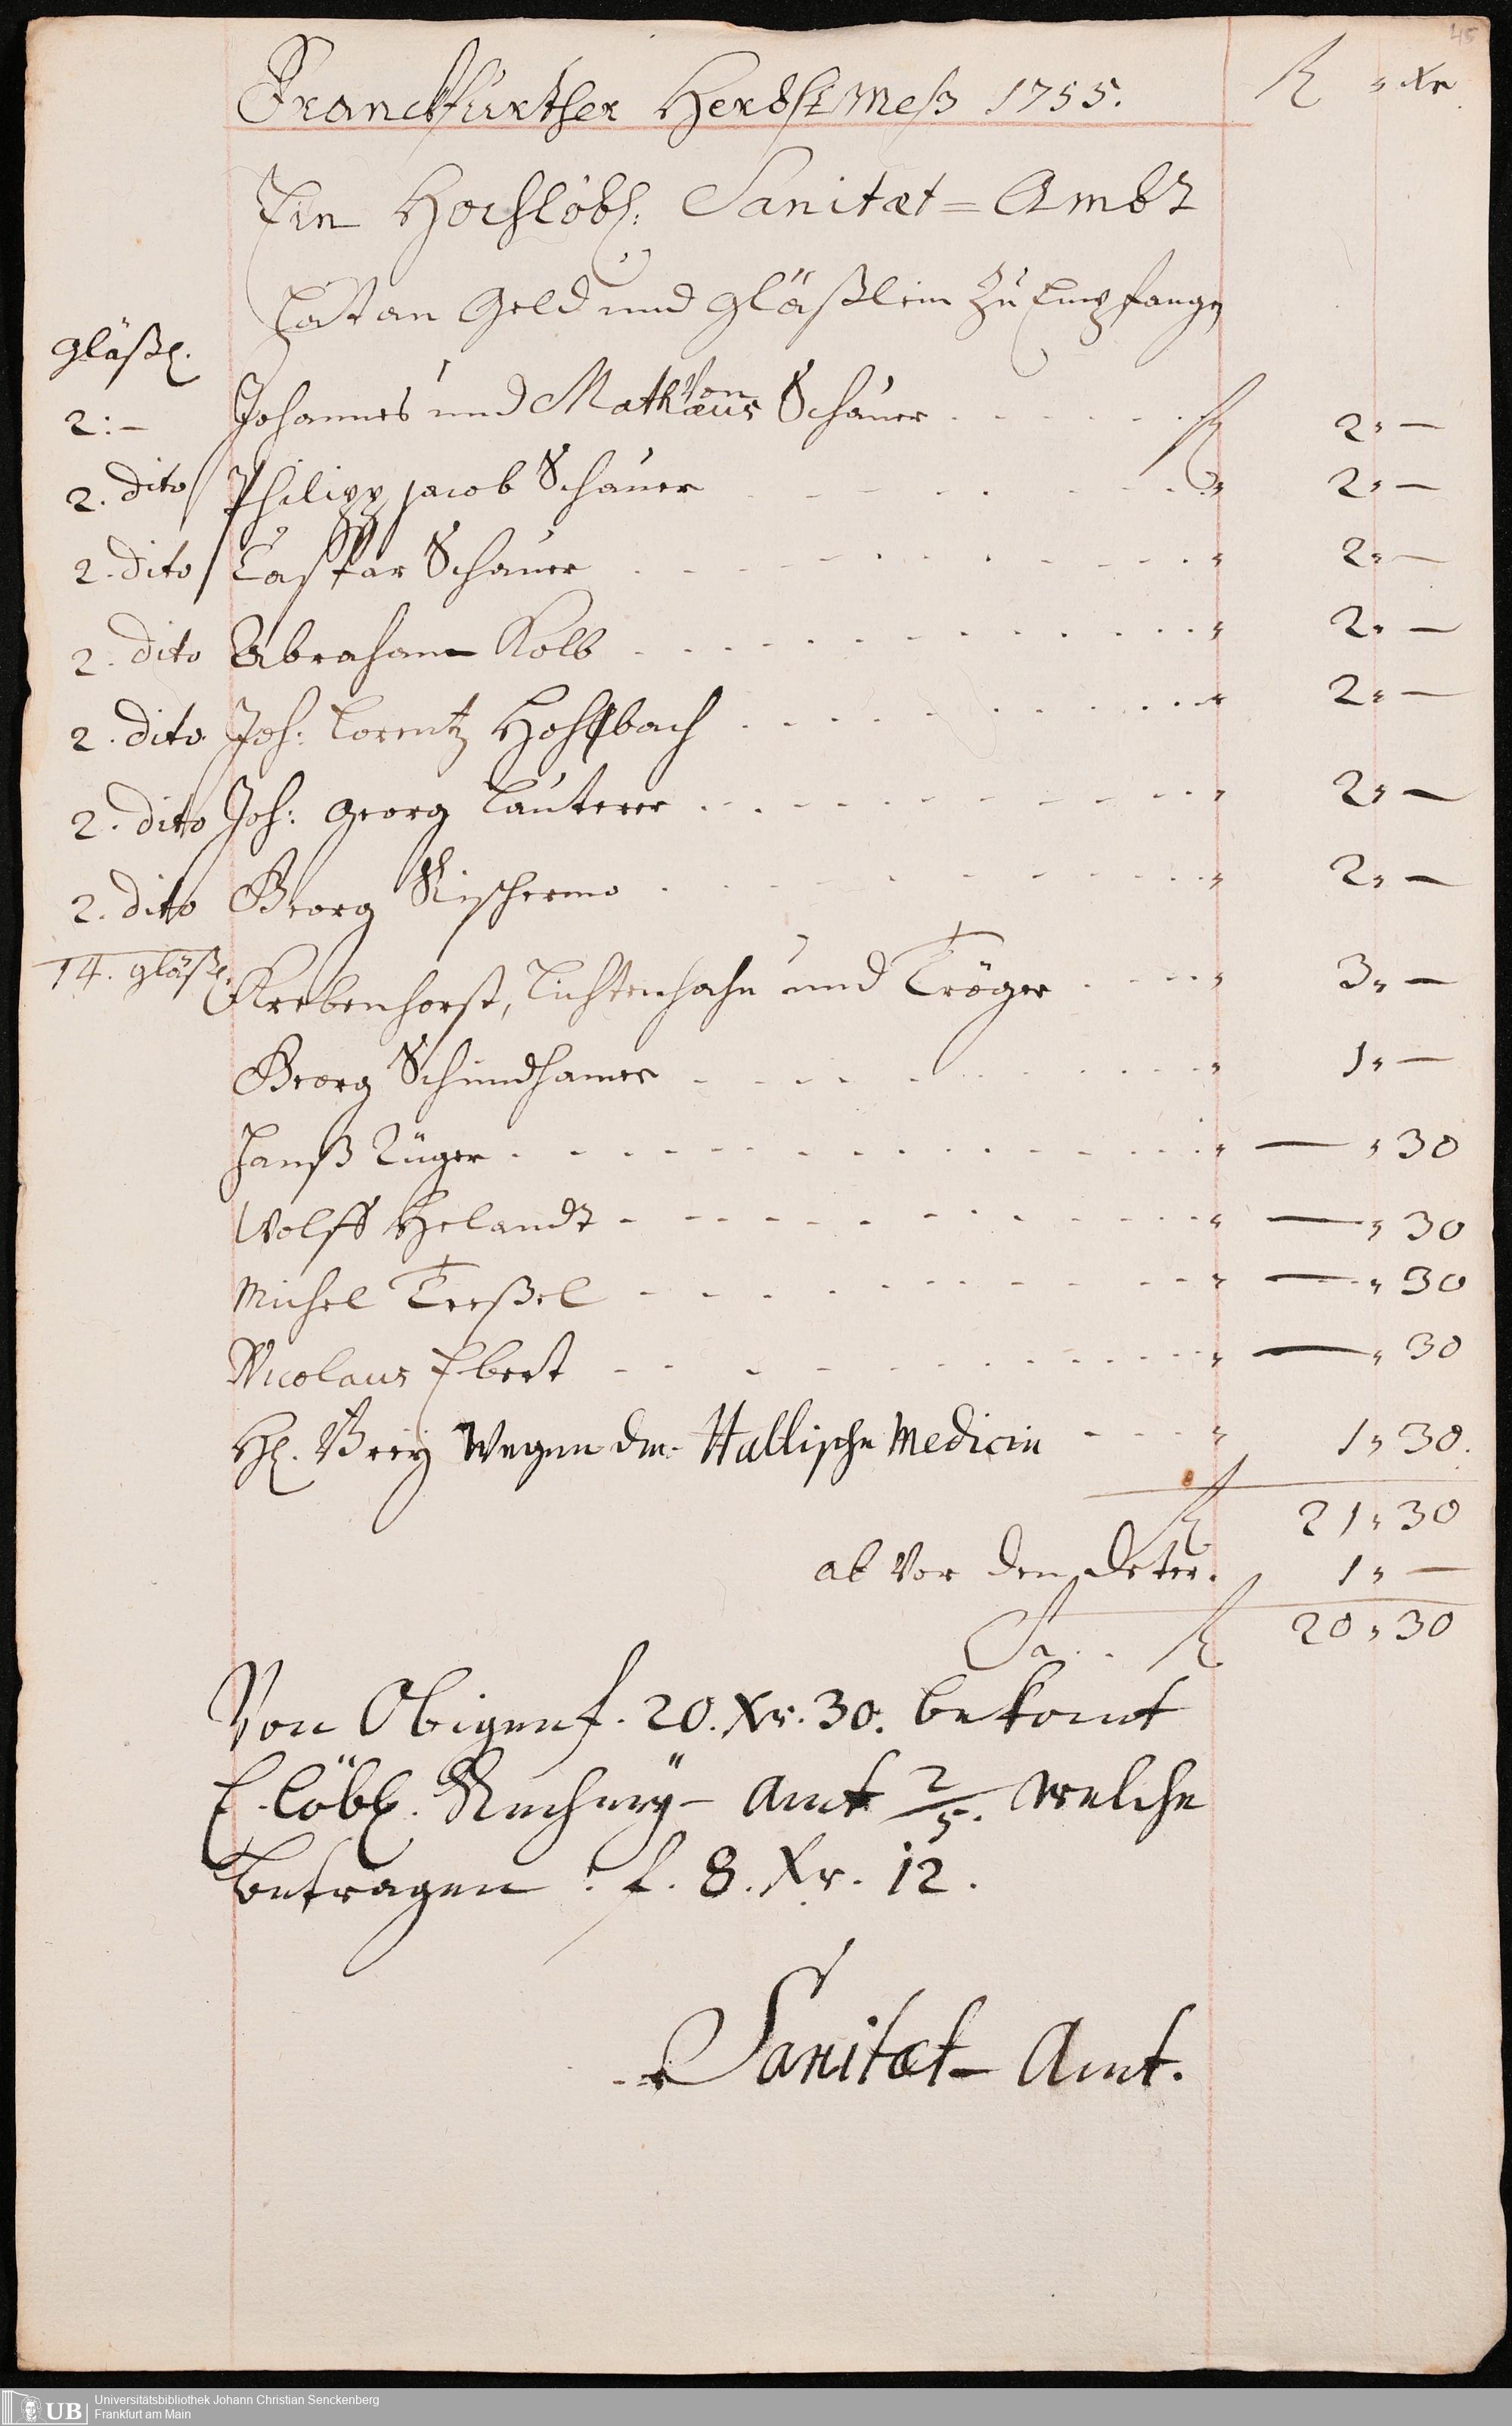 45
Franckfurther HerbstMeß 1755. f " Xr
Ein Hochlöbl: Sanitæt=Ambt
hat an Geld und gläßlein zu Empfangen
gläßl.
2:- Johannes und Mathæus Schauer f 2"—
2. dito Philipp Jacob Schauer " 2"—
2. dito Caspar Schauer " 2"—
2. dito Abraham Kolb " 2"—
2. dito Joh: Lorentz Hohlbach " 2"—
2. dito Joh: Georg Lauterer " 2"—
2. dito Georg " 2"—
14. gläßl. Krebenhorst, Lichtenhahn und Tröger " 3"—
Georg Schmidhamer " 1"—
Hanß Rüger " — " 30
Wolff Helandt " — " 30
Michel Treßel " — " 30
Nicolaus Ebert " — " 30
Hl. Brey Wegen der Hallische Medicin " 1" 30.
f 21" 30
ab Vor den 1"—
Sa. f 20" 30
Von Obigen f. 20. Xr. 30. bekomt
E. löbl. Rechney- Amt 2/5. welche
betragen : f. 8. Xr. 12.
Sanitæt- Amt.
UB Universitätsbibliothek Johann Christian Senckenberg
Frankfurt am Main